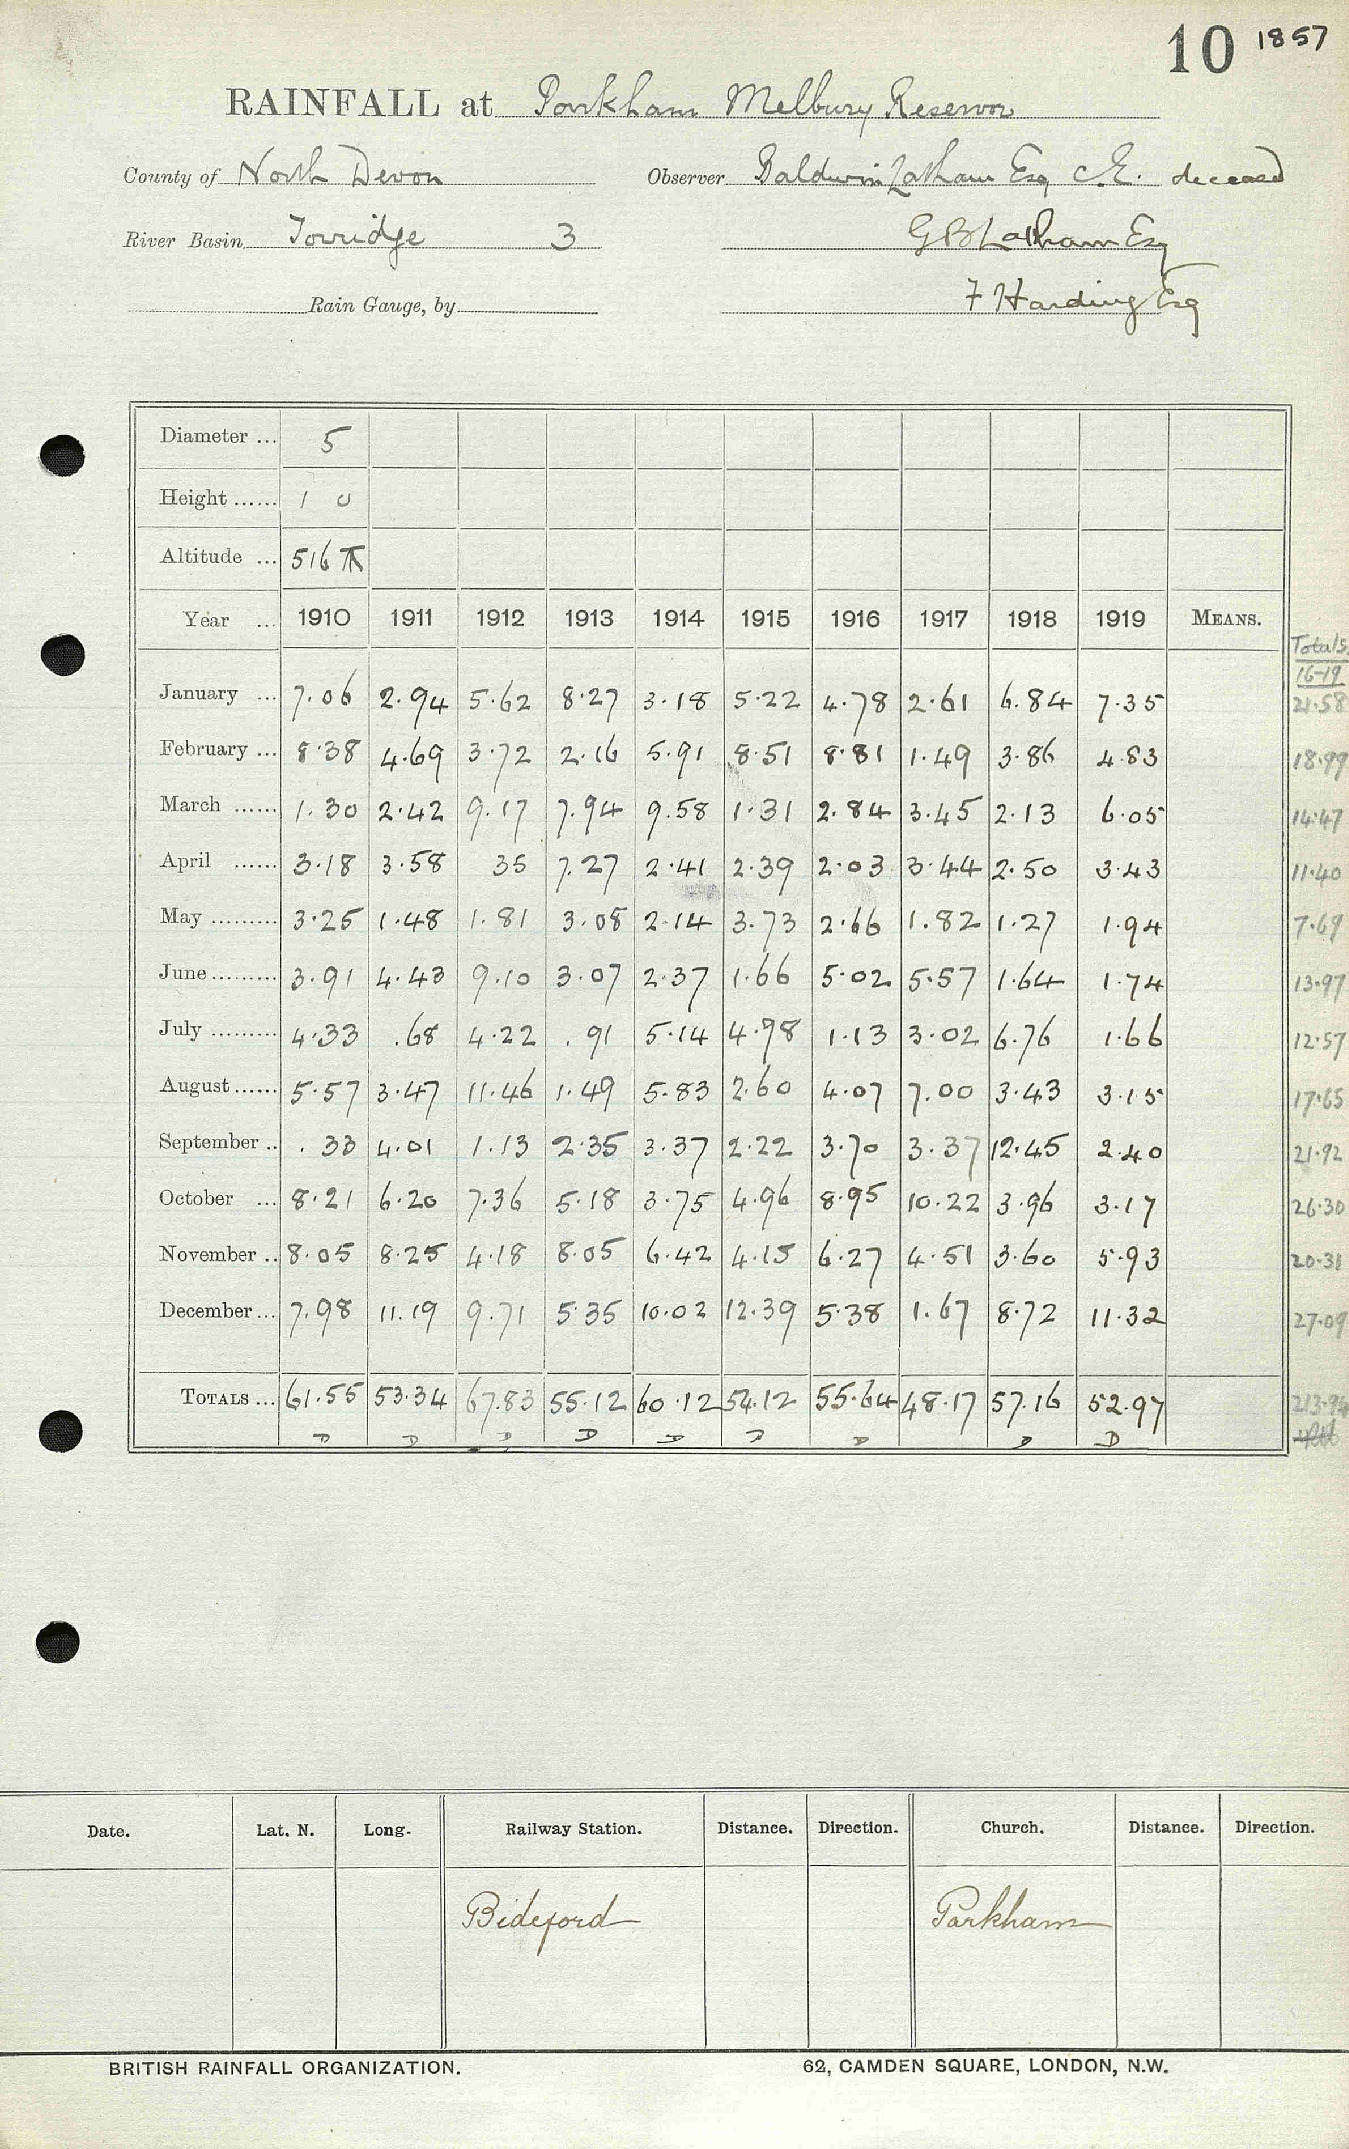 10 1857
RAINFALL at Parkham Melbury Reservoir
County of North Devon Observer Baldwin Latham Esq C.E. deceased
River Basin Torridge 3 G B Latham Esq
Rain Gauge, by F Harding Esq
Diameter ... 5
Height ...... 1 0
Altitude ... 516 ft
Year ... 1910 1911 1912 1913 1914 1915 1916 1917 1918 1919 MEANS. Totals
16-19
January ... 7.06 2.94 5.62 8.27 3.18 5.22 4.78 2.61 6.84 7.35 21.58
February ... 8.38 4.69 3.72 2.16 5.91 8.51 8.81 1.49 3.86 4.83 18.99
March ...... 1.30 2.42 9.17 7.94 9.58 1.31 2.84 3.45 2.13 6.05 14.47
April ...... 3.18 3.58 35 7.27 2.41 2.39 2.03 3.44 2.50 3.43 11.40
May ......... 3.25 1.48 1.81 3.08 2.14 3.73 2.66 1.82 1.27 1.94 7.69
June ......... 3.91 4.43 9.10 3.07 2.37 1.66 5.02 5.57 1.64 1.74 13.97
July ......... 4.33 .68 4.22 .91 5.14 4.98 1.13 3.02 6.76 1.66 12.57
August ...... 5.57 3.47 11.46 1.49 5.83 2.60 4.07 7.00 3.43 3.15 17.65
September .. .33 4.01 1.13 2.35 3.37 2.22 3.70 3.37 12.45 2.40 21.92
October ... 8.21 6.20 7.36 5.18 3.75 4.96 8.95 10.22 3.96 3.17 26.30
November .. 8.05 8.25 4.18 8.05 6.42 4.15 6.27 4.51 3.60 5.93 20.31
December ... 7.98 11.19 9.71 5.35 10.02 12.39 5.38 1.67 8.72 11.32 27.09
TOTALS ... 61.55 53.34 67.83 55.12 60.12 54.12 55.64 48.17 57.16 52.97 213.94
D D D D D D D D D
Date. Lat. N. Long. Railway Station. Distance. Direction. Church. Distance. Direction.
Bideford Parkham
BRITISH RAINFALL ORGANIZATION. 62, CAMDEN SQUARE, LONDON, N.W.